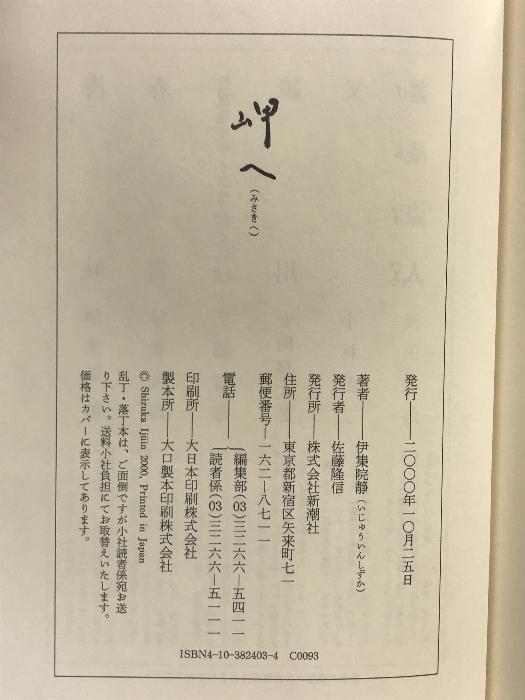 岬へ
(みさきへ)
発行——二〇〇〇年一〇月二五日
著者——伊集院静(いじゅういんしずか)
発行者——佐藤隆信
発行所——株式会社新潮社
住所——東京都新宿区矢来町七一
郵便番号—一六二—八七一一
電話
編集部(03)三二六六—五四一一
読者係(03)三二六六—五一一一
印刷所——大日本印刷株式会社
製本所——大口製本印刷株式会社
© Shizuka Ijūin 2000, Printed in Japan
乱丁・落丁本は、ご面倒ですが小社読者係宛お送
り下さい。送料小社負担にてお取替えいたします。
価格はカバーに表示してあります。
ISBN4-10-382403-4 C0093